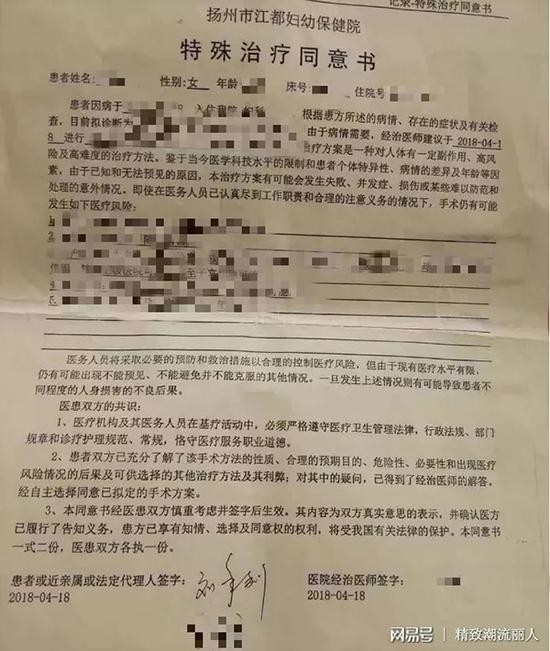 记录-特殊治疗同意书
扬州市江都妇幼保健院
特殊治疗同意书
患者姓名: 性别:女 年龄 床号: 住院号
患者因病于 入住我院 妇科 根据患方所述的病情、存在的症状及有关检
查,目前拟诊断为 由于病情需要,经治医师建议于 2018-04-1
8 进行 治疗方案是一种对人体有一定副作用、高风
险及高难度的治疗方法。鉴于当今医学科技水平的限制和患者个体特异性、病情的差异及年龄等因
素,由于已知和无法预见的原因,本治疗方案有可能会发生失败、并发症、损伤或某些难以防范和
处理的意外情况。即使在医务人员已认真尽到工作职责和合理的注意义务的情况下,手术仍有可能
发生如下医疗风险:
1
4
5
医务人员将采取必要的预防和救治措施以合理的控制医疗风险,但由于现有医疗水平有限,
仍有可能出现不能预见、不能避免并不能克服的其他情况。一旦发生上述情况则有可能导致患者不
同程度的人身损害的不良后果。
医患双方的共识:
1、医疗机构及其医务人员在基疗活动中,必须严格遵守医疗卫生管理法律,行政法规、部门
规章和诊疗护理规范、常规,恪守医疗服务职业道德。
2、患者双方已充分了解了该手术方法的性质、合理的预期目的、危险性、必要性和出现医疗
风险情况的后果及可供选择的其他治疗方法及其利弊;对其中的疑问,已得到了经治医师的解答。
经自主选择同意已拟定的手术方案。
3、本同意书经医患双方慎重考虑并签字后生效。其内容为双方真实意思的表示,并确认医方
已履行了告知义务,患方已享有知情、选择及同意权的权利,将受我国有关法律的保护。本同意书
一式二份,医患双方各执一份。
患者或近亲属或法定代理人签字: 医院经治医师签字:
2018-04-18 2018-04-18
网易号 | 精致潮流丽人